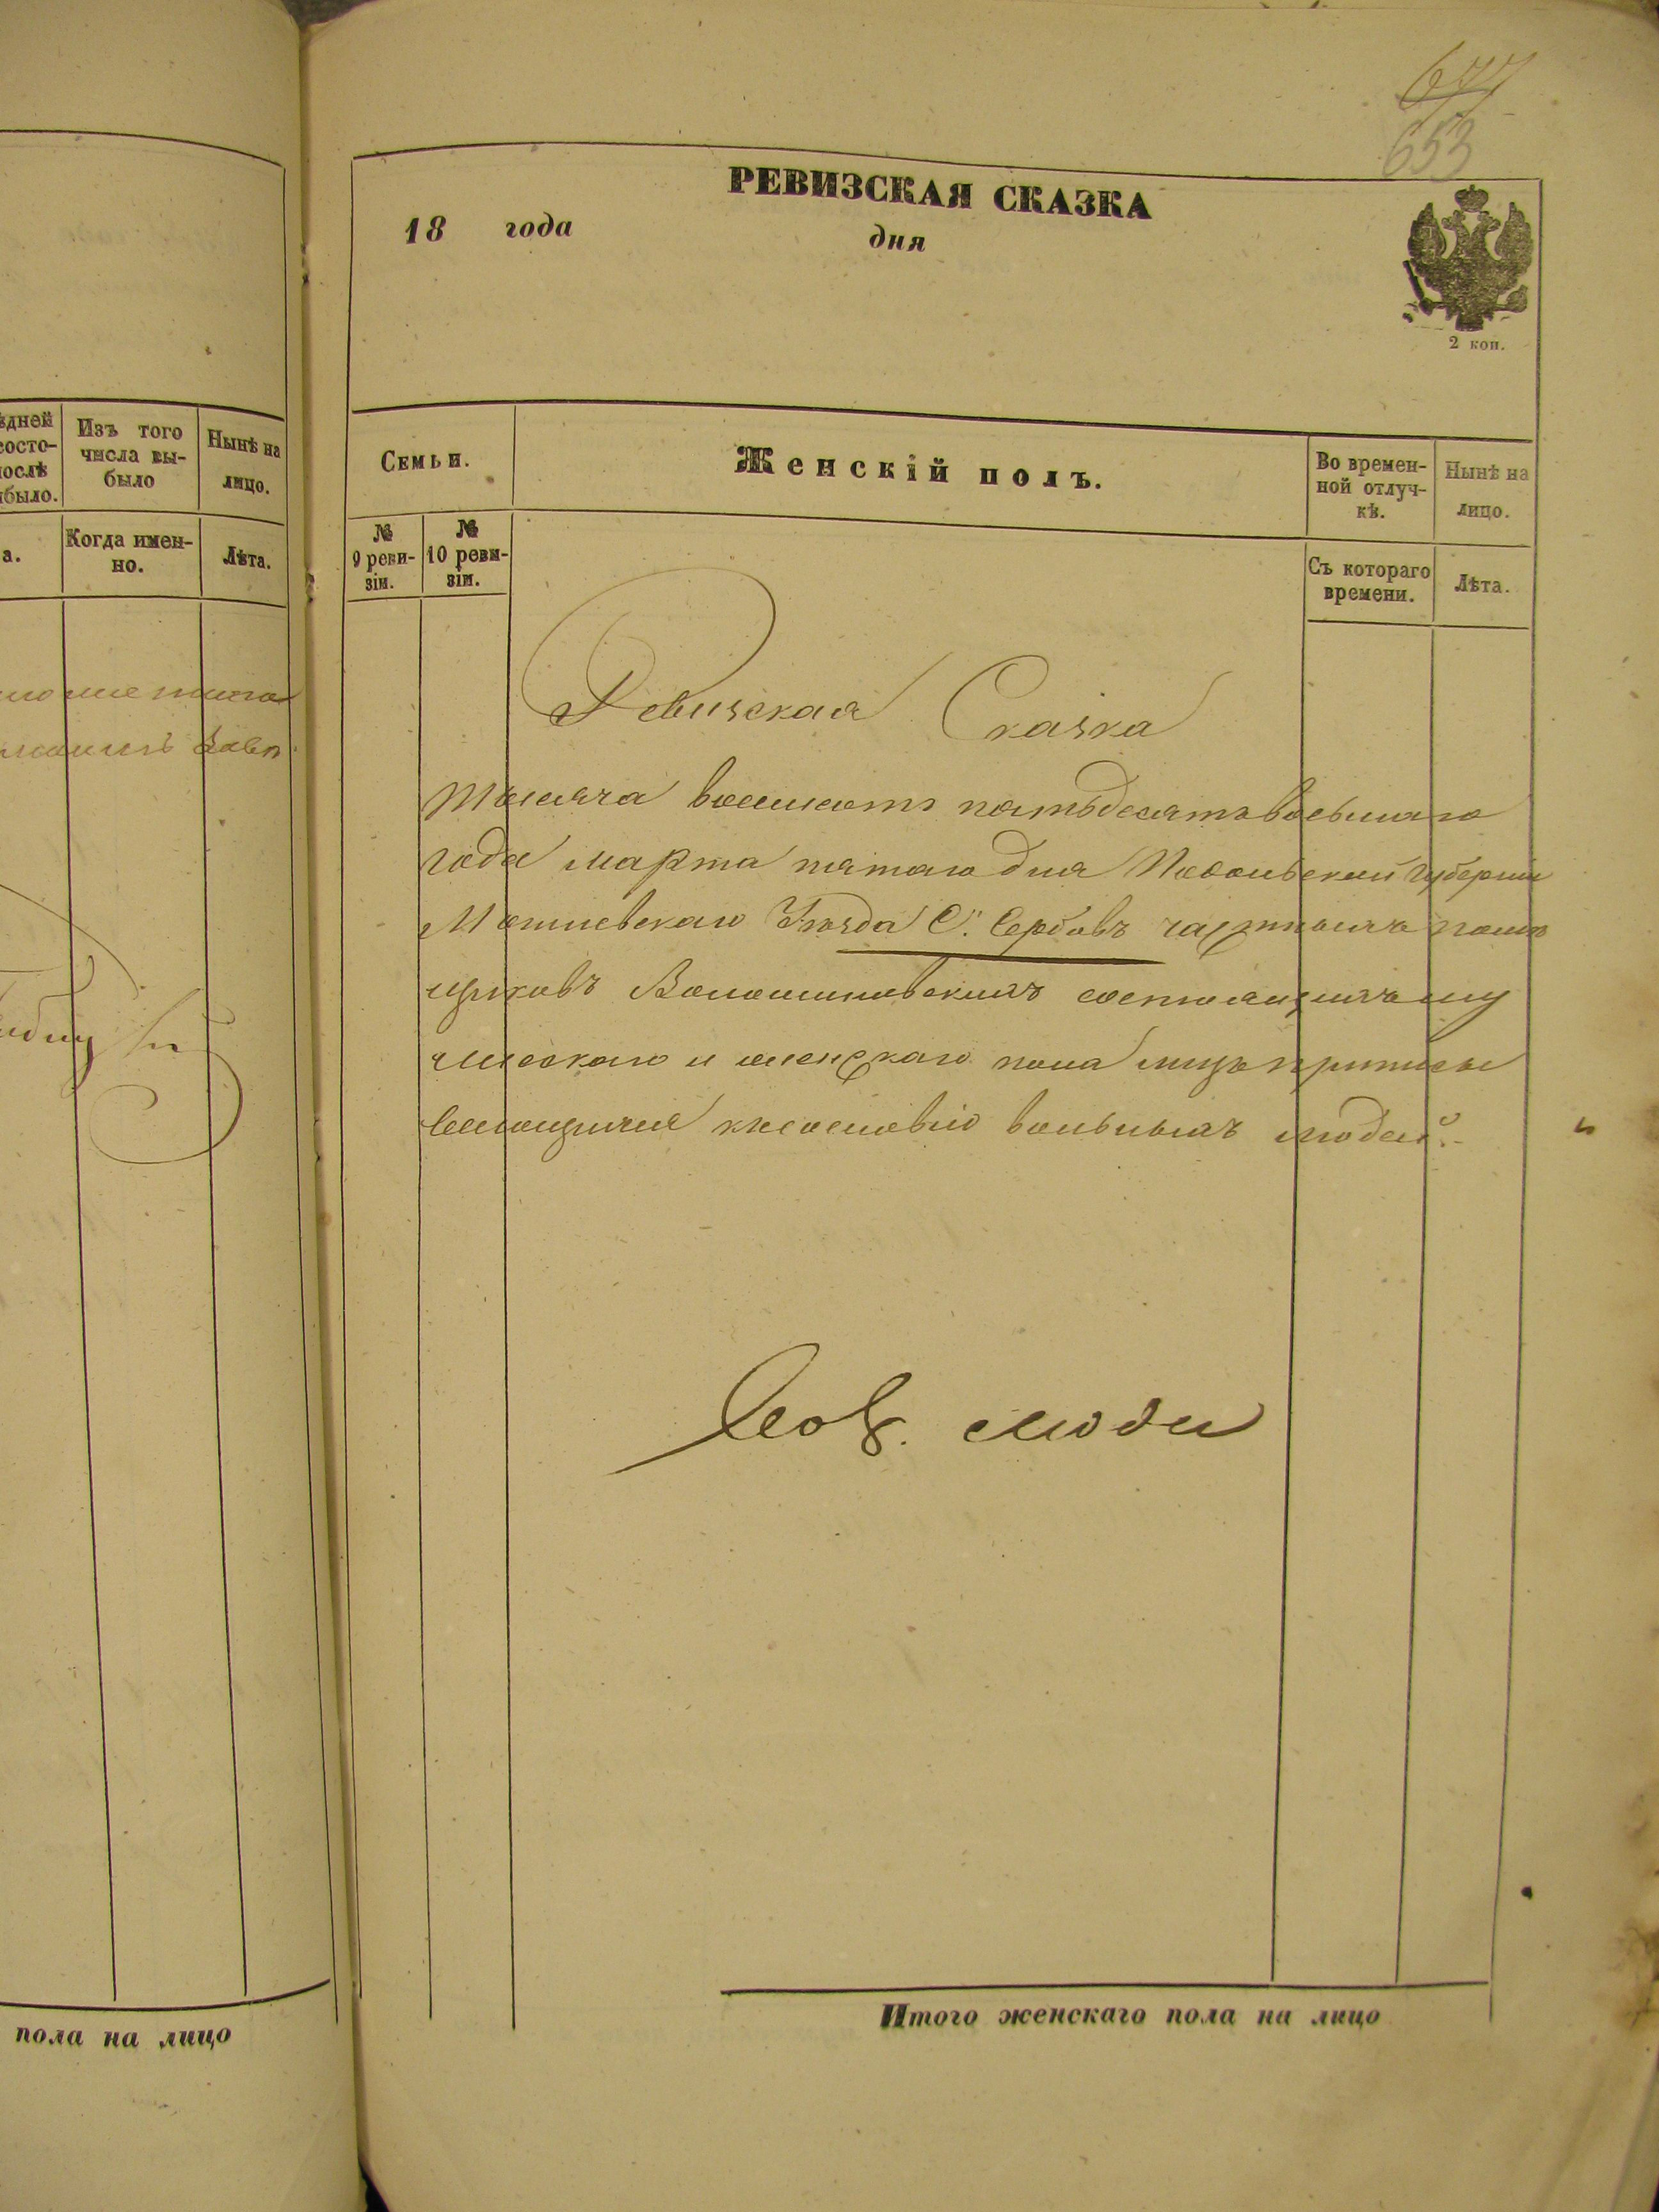 677
653
РЕВИЗСКАЯ СКАЗКА
18 года дня
2 коп.
ѣдней
состо-
послѣ
было.
Изъ того
числа вы-
было
Нынѣ на
лицо.
а.
Когда имен-
но.
Лѣта.
Семьи.
Женскій полъ.
Во времен-
ной отлуч-
кѣ.
Нынѣ на
лицо.
№
9 реви-
зіи.
№
10 реви-
зіи.
Съ котораго
времени.
Лѣта.
Ревизская Сказка
Тысяча восемсотъ пятьдесятъ восьмаго
года марта пятаго дня Подольской Губерніи
Уѣзда С. Сербовъ частныхъ помѣ
щиковъ Волошиновскихъ состоящихъ му
жескаго и женскаго пола лицъ приписы
вающихся къ сословію вольныхъ людей.
люди
пола на лицо
Итого женскаго пола на лицо